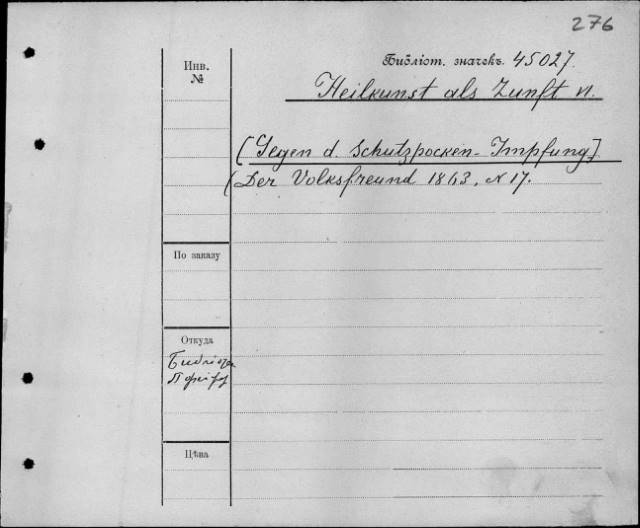 276
Библіот. значекъ. 45027.
Инв.
№
Heilkunst als Zunft
[Gegen d. Schutzpocken-Impfung]
(Der Volksfreund 1843. N 17.
По заказу
Откуда
Цѣна